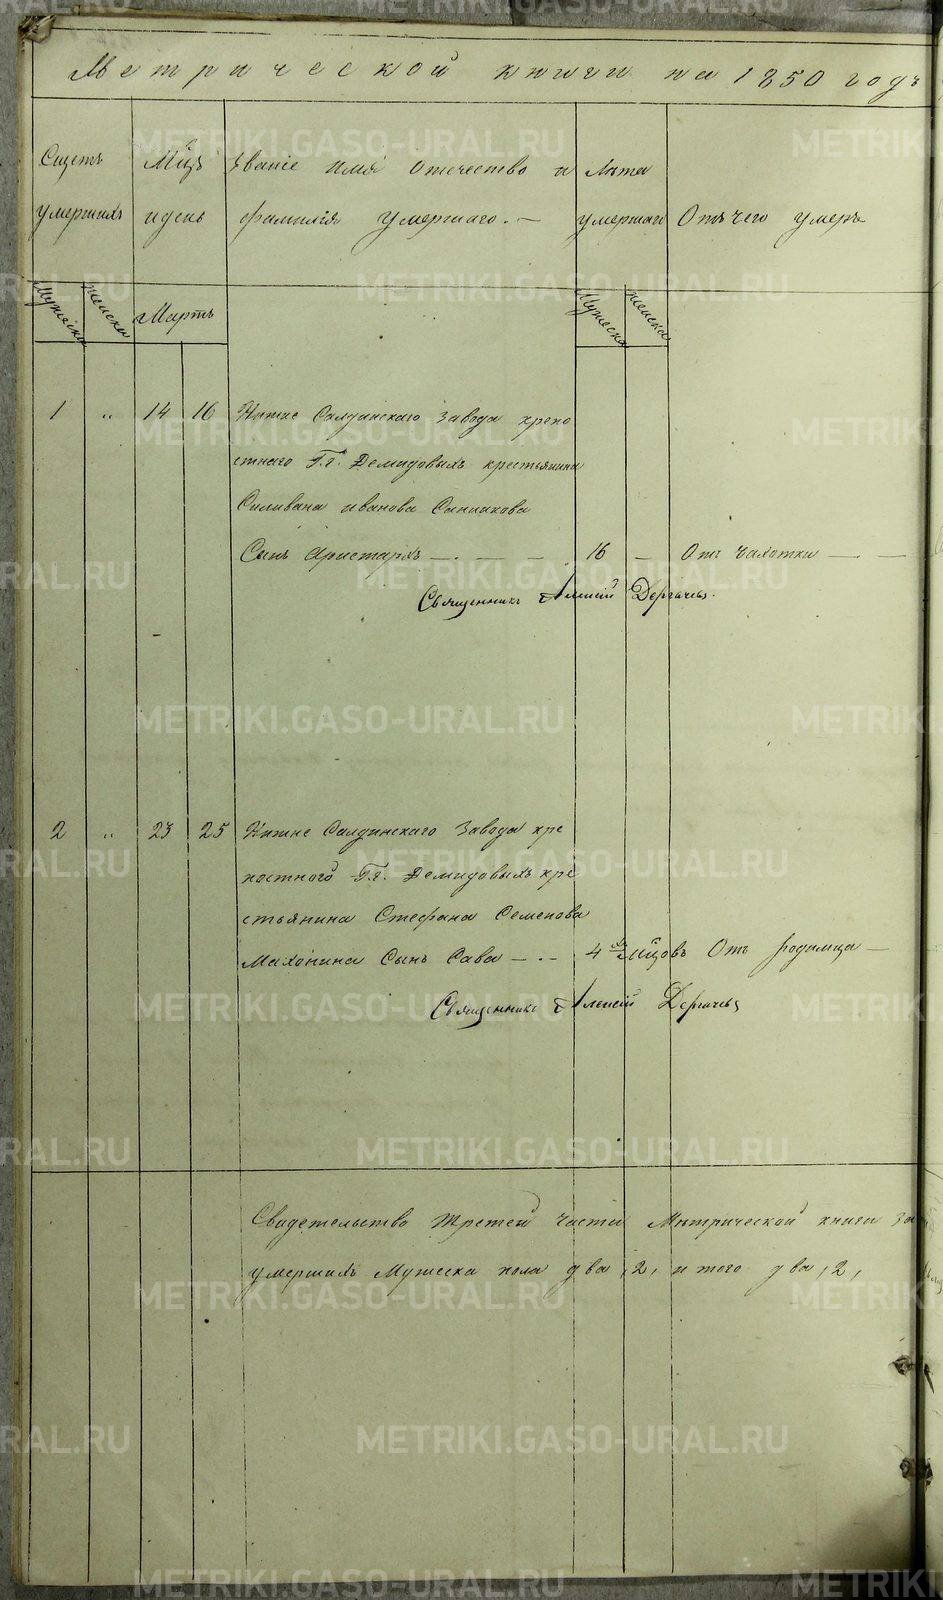 Метрической книги на 1850 годъ
Счетъ умершихъ
Мцъ и день
Званіе имя отечество и фамилія умершаго. —
Лѣта умершаго
Отъ чего умеръ
Мужеска
Женска
Мартъ
Мужеска
Женска
1 „ 14 16 Нижне Салдинскаго завода крепо
стнаго Г.г. Демидовыхъ крестьянина
Силивана Иванова
Сынъ Аристархъ — . — — 16 — Отъ Чахотки — —
Священникъ Алексій Дергачевъ.
2 „ 23 25 Нижне Салдинскаго завода кре
постного Г.г. Демидовыхъ кре
стьянина Стефана Семенова
Махонина Сынъ Сава — . — 4 мцовъ Отъ родимца —
Священникъ Алексій Дергачевъ
Свидетельство третей части Митрической книги за
умершихъ Мужеска пола два, 2, и того два, 2,
METRIKI.GASO-URAL.RU